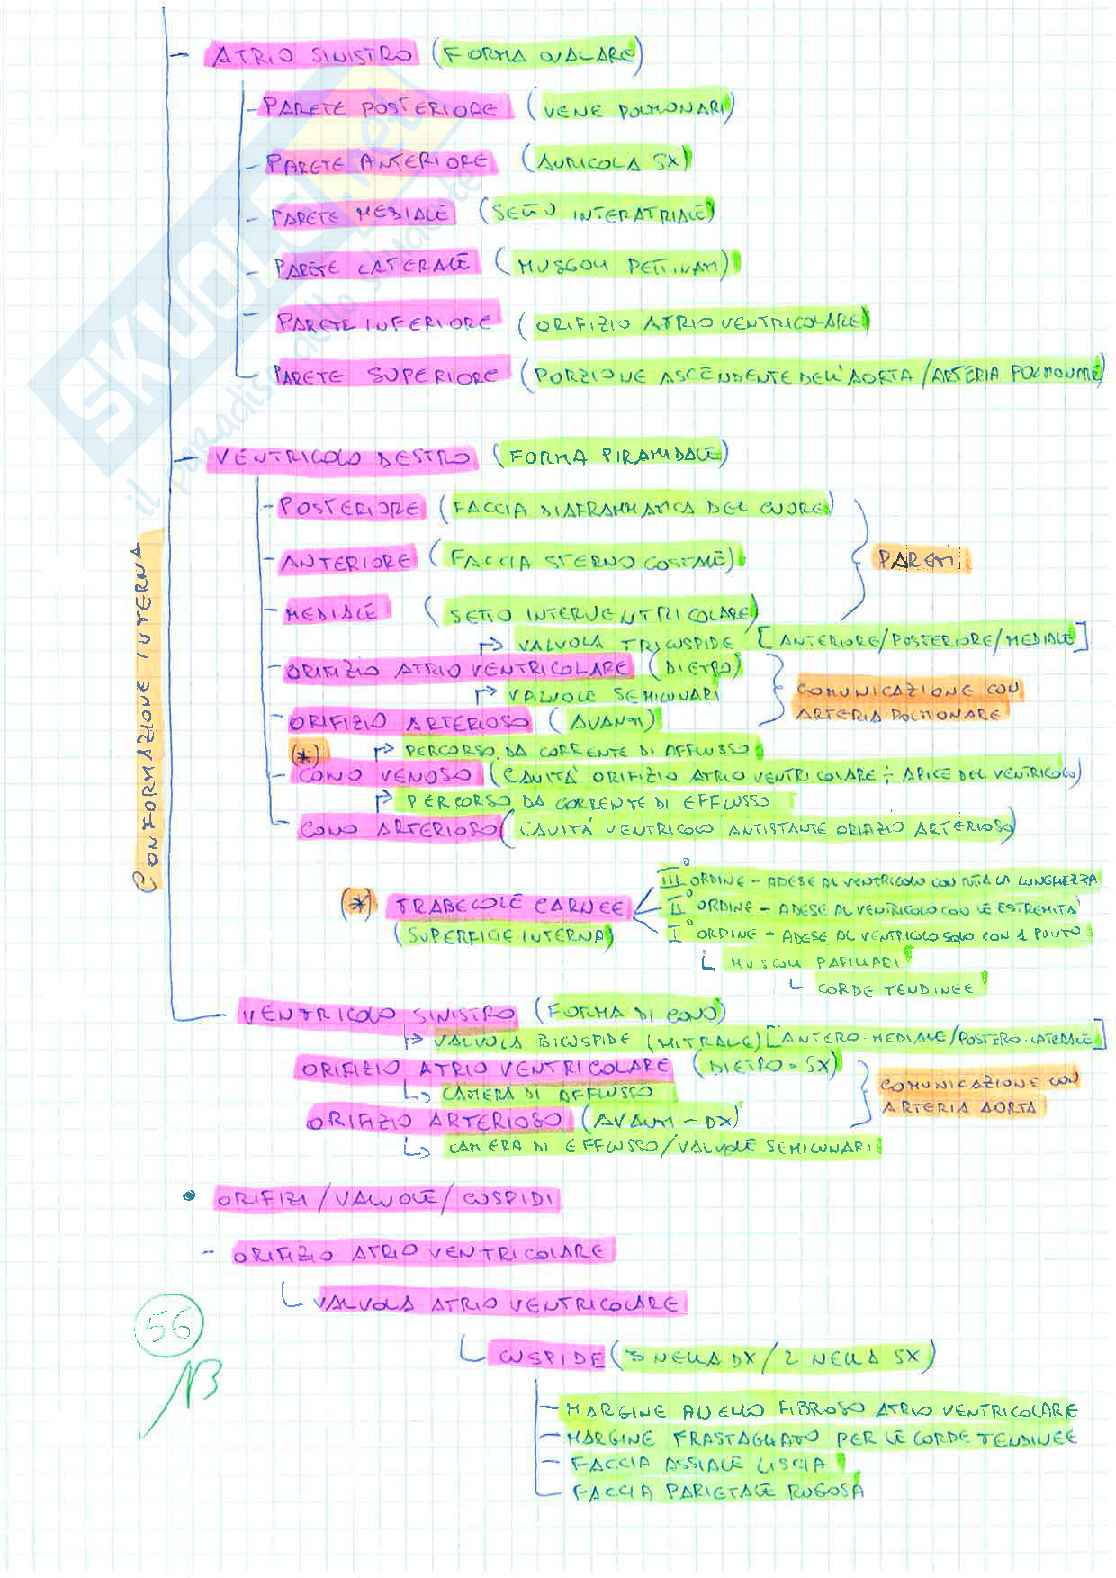 - ATRIO SINISTRO (FORMA OVALARE)
- PARETE POSTERIORE (VENE POLMONARI)
- PARETE ANTERIORE (AURICOLA SX)
- PARETE MEDIALE (SETTO INTERATRIALE)
- PARETE LATERALE (MUSCOLI PETTINATI)
- PARETE INFERIORE (ORIFIZIO ATRIO VENTRICOLARE)
- PARETE SUPERIORE (PORZIONE ASCENDENTE DELL'AORTA/ARTERIA POLMONARE)
SKUOLA.net
il paradiso dello studente
CONFORMAZIONE INTERNA
- VENTRICOLO DESTRO (FORMA PIRAMIDALE)
- POSTERIORE (FACCIA DIAFRAMMATICA DEL CUORE)
- ANTERIORE (FACCIA STERNO COSTALE)
PARETI
- MEDIALE (SETTO INTERVENTRICOLARE)
→ VALVOLA TRICUSPIDE [ANTERIORE/POSTERIORE/MEDIALE]
- ORIFIZIO ATRIO VENTRICOLARE (DIETRO)
→ VALVOLE SEMILUNARI
COMUNICAZIONE CON
ARTERIA POLMONARE
- ORIFIZIO ARTERIOSO (AVANTI)
(*) → PERCORSO DA CORRENTE DI AFFLUSSO
- CONO VENOSO (CAVITÀ ORIFIZIO ATRIO VENTRICOLARE ÷ APICE DEL VENTRICOLO)
→ PERCORSO DA CORRENTE DI EFFLUSSO
- CONO ARTERIOSO (CAVITÀ VENTRICOLO ANTISTANTE ORIFIZIO ARTERIOSO)
III° ORDINE - ADESE AL VENTRICOLO CON TUTTA LA LUNGHEZZA
(*) TRABECOLE CARNEE
II° ORDINE - ADESE AL VENTRICOLO CON LE ESTREMITÀ
(SUPERFICIE INTERNA)
I° ORDINE - ADESE AL VENTRICOLO SOLO CON 1 PUNTO
MUSCOLI PAPILLARI
CORDE TENDINEE
VENTRICOLO SINISTRO (FORMA DI CONO)
→ VALVOLA BICUSPIDE (MITRALE) [ANTERO-MEDIALE/POSTERO-LATERALE]
ORIFIZIO ATRIO VENTRICOLARE (DIETRO-SX)
→ CAMERA DI AFFLUSSO
COMUNICAZIONE CON
ARTERIA AORTA
ORIFIZIO ARTERIOSO (AVANTI-DX)
→ CAMERA DI EFFLUSSO/VALVOLE SEMILUNARI
• ORIFIZI/VALVOLE/CUSPIDI
- ORIFIZIO ATRIO VENTRICOLARE
VALVOLA ATRIO VENTRICOLARE
56
CUSPIDE (3 NELLA DX/2 NELLA SX)
- MARGINE ANELLO FIBROSO ATRIO VENTRICOLARE
- MARGINE FRASTAGLIATO PER LE CORDE TENDINEE
- FACCIA ASSIALE LISCIA
- FACCIA PARIETALE RUGOSA